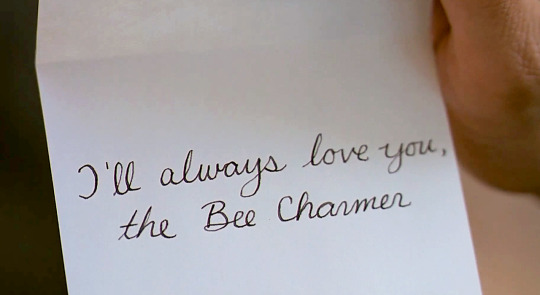 I'll always love you,
the Bee Charmer